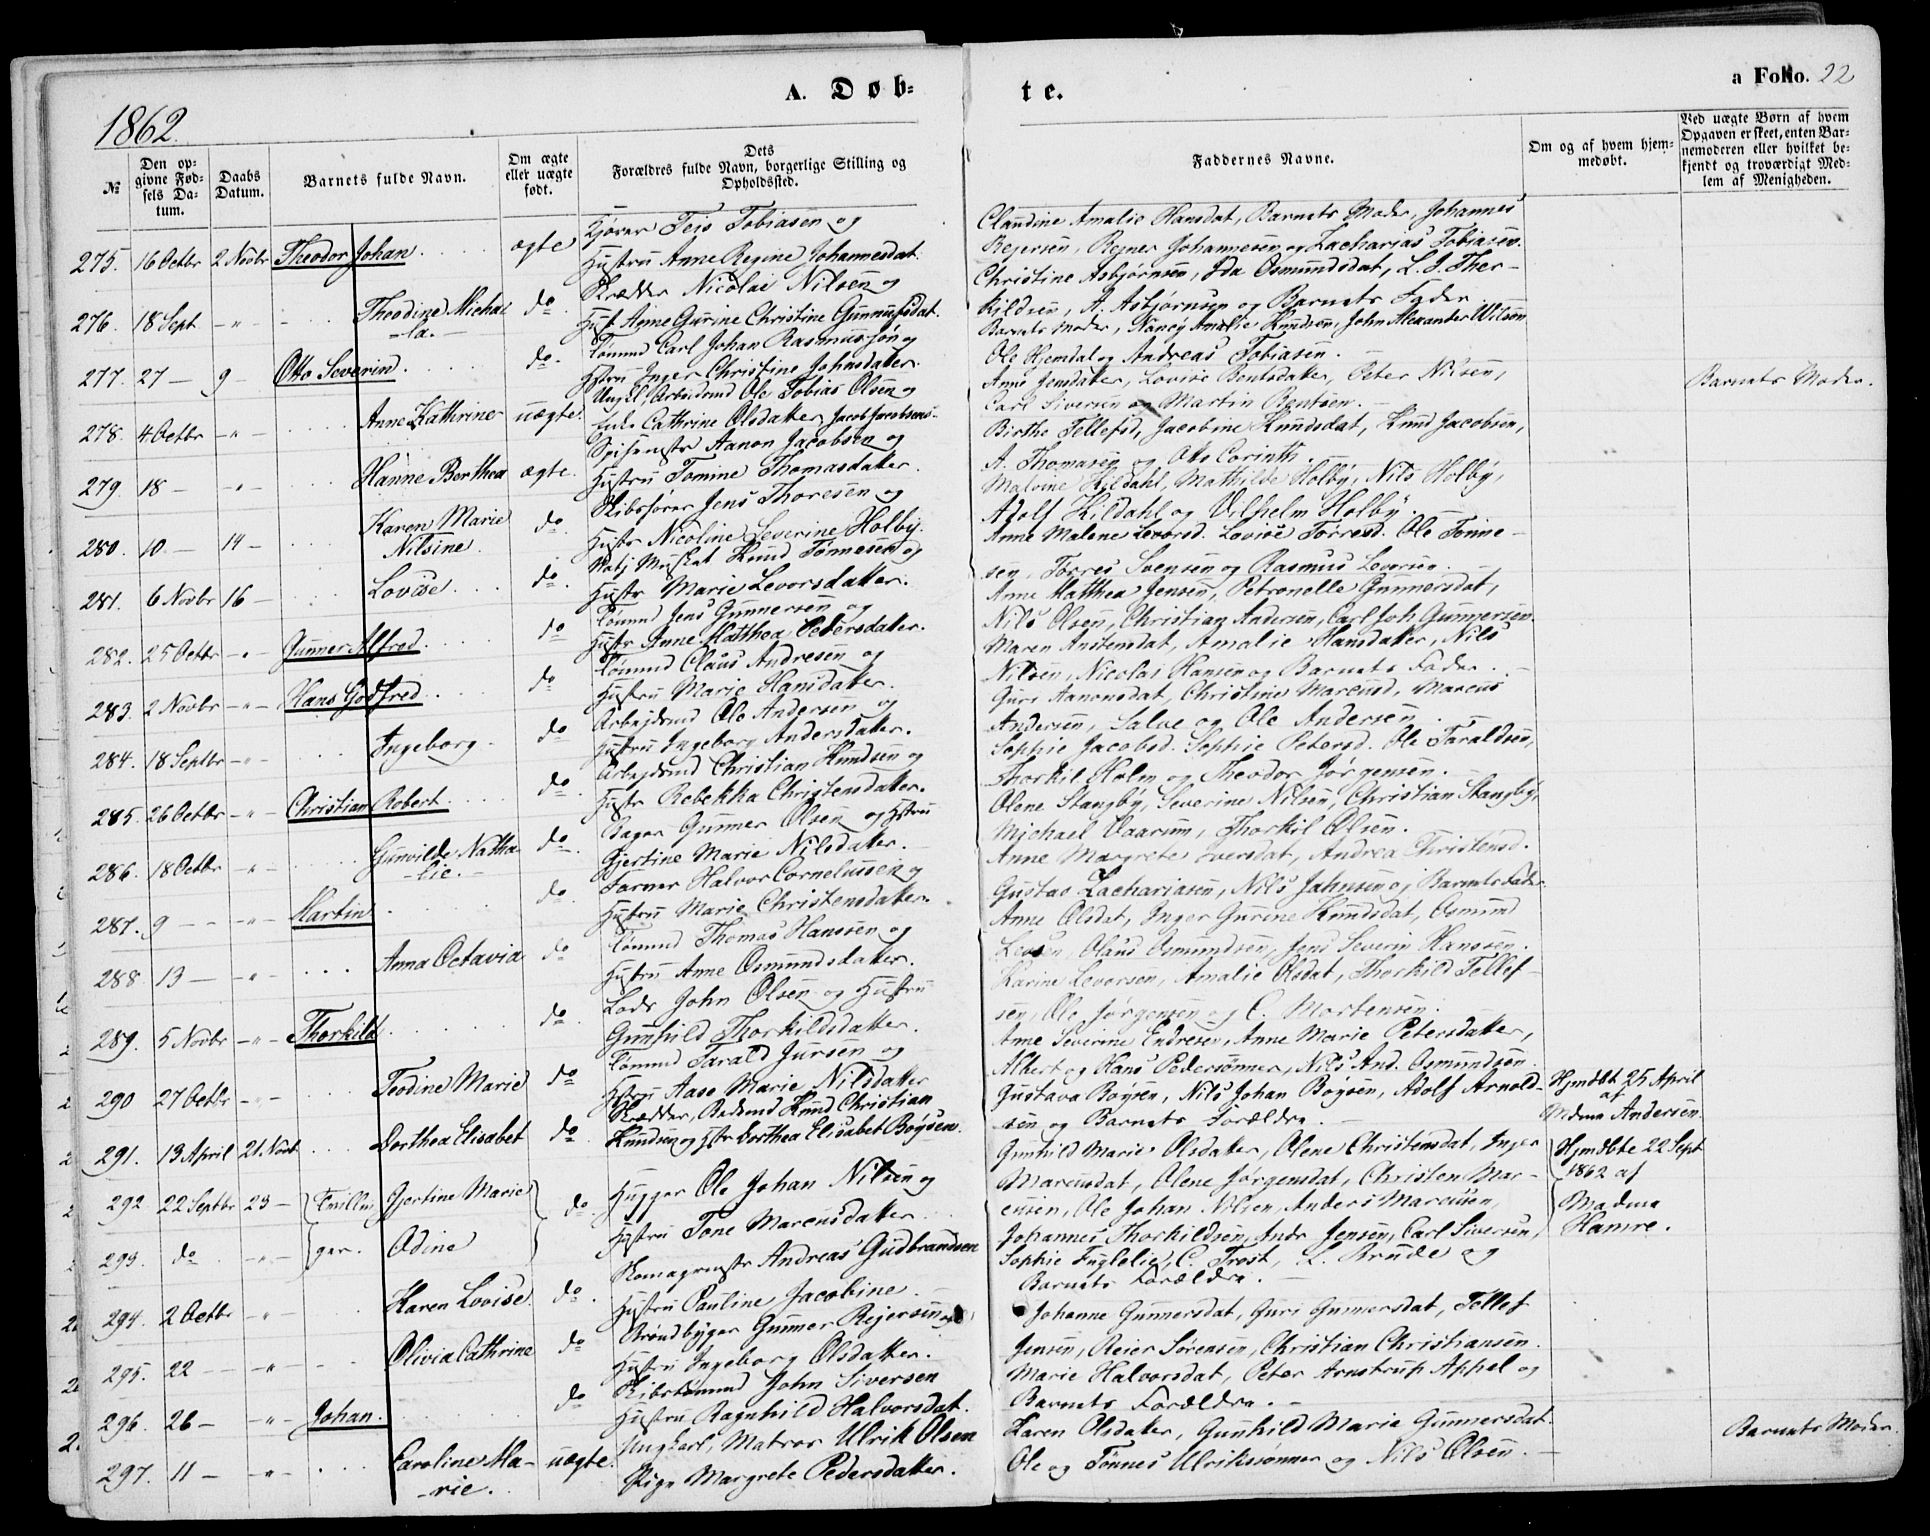 1862.
A. Døb=
№
Den op=
givne Fød=
sels Da=
tum.
Daabs
Datum.
Barnets fulde Navn.
Om ægte
eller uægte
født.
Dets
Forældres fulde Navn, borgerlige Stilling og
Opholdssted.
275. 16 Octbr 2 Novbr Theodor Johan ægte Teis Tobiasen og
Hustru Anne Regine Johannesdat.
276. 18 Sept - " - Theodine Micha- do Skrædder Nicolai Nilsen og
-la. Hust Anne Gurine Christine Gunnufsdat.
277. 27 - 9 - Otto Severin do Tømmd Carl Johan Rasmussøn og
Hstru Inger Christine Johnsdatter.
278. 4 Octbr - " - Anne Kathrine uægte. Ungkl Arbudmd Ole Tobias Olsen og
Enke Cathrine Olsdatter Jacob Jacobsens.
279. 18 - - " - Hanne Berthea ægte. Aanon Jacobsen og
Hustru Tomine Thomasdatter.
280. 10 - 14 - Karen Marie do Skibsfører Jens Thoresen og
Nilsine. Hustr Nicoline Severine Holby.
281. 6 Novbr 16 - Lovise do. Knud Tønnesen og
Hustr Marie Levorsdatter.
282. 25 Octbr - " - Gunner Alfred. do Tømmd Jens Gunnersen og
Hustr Anne Matthea Petersdatter.
283. 2 Novbr - " - Hans Godfred do Tømmd Claus Andresen og
Hustru Marie Hansdatter.
284. 18 Septbr - " - Ingeborg do Arbejdsmd Ole Andersen og
Hustru Ingeborg Andersdatter.
285. 26 Octbr - " - Christian Robert do. Arbejdsmd Christian Knudsen og
Hustr Rebekka Christensdatter.
286. 18 Octbr - " - Gunvilde Natha- do Bager Gunner Olsen og Hstru
-lie. Gjertine Marie Nilsdatter.
287. 9 - - " - Martin do Farver Halvor Corneliussen og
Hustru Marie Christensdatter.
288 13 - - " - Anna Octavia do Tømmd Thomas Hanssen og
Hustru Anne Osmundsdatter.
289. 5 Novbr - " - Thorkild do Lods John Olsen og Hustru
Gunhild Thorkildsdatter.
290 27 Octbr - " - Teodine Marie do Tømmd Tarald Jursen og
Hstru Aase Marie Nilsdatter
291. 13 April 21 Novb. Dorthea Elisabet do Skrædder, Knud Christian
Knudsen og Hstr Dorthea Elisabet Boysen.
292 22 Septbr 23 - Tvillin- Gjertine Marie do. Hugger Ole Johan Nilsen og
293. do - " - ger. Odine Hustru Tone Marcusdatter
294. 2 Octbr - " - Karen Lovise do. Andreas Gudbrandsen
Hustru Pauline Jacobine.
295. 22 - - " - Olivia Cathrine do Brøndbygger Gunner Rejersen og
Hustru Ingeborg Olsdatter.
296. 26 - - " - Johan. do Skibstømmd John Siversen
Hustru Ragnhild Halvorsdat.
297. 11 - - " - Caroline Ma- uægte. Ungkarl, Matros Ulrik Olsen
-rie. Pige Margrete Pedersdatter.
te.
a Folio. 22
Faddernes Navne.
Om og af hvem hjem-
medøbt.
Ved uægte Børn af hvem
Opgaven er skeet, enten Bar-
nemoderen eller hvilket be-
kjendt og troværdigt Med-
lem af Menigheden.
Claudine Amalie Hansdat, Barnets Moder, Johannes
Rejersen, Rejner Johannesen og Zacharias Tobiasen.
Christine Asbjørnsen, Ida Osmundsdat, L. J. Ther-
kildsen, A. Asbjørnsen og Barnets Fader
Barnets Moder, Nancy Amalie Knudsen, John Alexander Wilson
Ole Hjemdal og Andreas Tobiasen.
Anne Jensdatter, Lovise Bentsdatter, Peter Nilsen, Barnets Moder.
Carl Siversen og Martin Bentsen.
Birthe Tellefsd, Jacobine Knudsdat, Knud Jacobsen,
A. Thomasen og Otto Corinth.
Malvine Kildahl, Mathilde Holby, Nils Holby,
Adolf Kildahl og Vilhelm Holby.
Anne Malene Levorsd. Lovise Torresd. Ole Tønne-
sen, Torres Svensen og Rasmus Levorsen.
Anne Matthea Jensen, Petronelle Gunnersdat,
Nils Olsen, Christian Andersen, Carl Joh Gunnersen.
Maren Anstensdat, Amalie Hansdatter, Nils
Nilsen, Nicolai Hansen og Barnets Fader.
Guri Aanonsdat, Christine Marcusd, Marcus
Andersen, Salve og Ole Andersen
Sophie Jacobsd. Sophie Petersd. Ole Taraldsen,
Thorkil Holm og Theodor Jørgensen.
Olene Stangby, Severine Nilsen, Christian Stangby,
Michael Vaarum, Thorkil Olsen.
Anne Margrete Iversdat, Andrea Christensd.
Gustav Zachariasen, Nils Jahnsen og Barnets Fader
Anne Olsdat, Inger Gurine Knudsdat, Osmund
Olaus Osmundsen, Jens Severin Hanssen.
Karine Levorsen, Amalie Olsdat, Thorkild Tellef-
sen, Ole Jørgensen og C. Mortensen.
Anne Severine Endresen, Anne Marie Petersdatter,
Albert og Hans Pedersønner, Nils And. Osmundsen
Gustava Boysen, Nils Johan Boysen, Adolf Arnold- Hjmdbt 25 April
sen og Barnets Forældre. af Mdme Andersen.
Gunhild Marie Olsdatter, Olene Christensdat, Inger Hjmdbte 22 Sept
Marcusdat, Olene Jørgensdat, Christen Mar- 1862 af
cussen, Ole Johan Nilsen, Anders Marcussen, Madme
Johannes Thorkildsen, Andr Jensen, Carl Siversen, Hamre.
Sophie Fuglelie, C. Trost, L. Brude og
Barnets Forældre.
Johanne Gunnersdat, Guri Gunnersdat, Tellef
Jensen, Reier Sørensen, Christian Christiansen.
Marie Halvorsdat, Peter Arnstrup Appel og
Barnets Forældre.
Karen Olsdatter, Gunhild Maria Gunnersdat. Barnets Moder.
Ole og Tønnes Ulrikssønner og Nils Olsen.